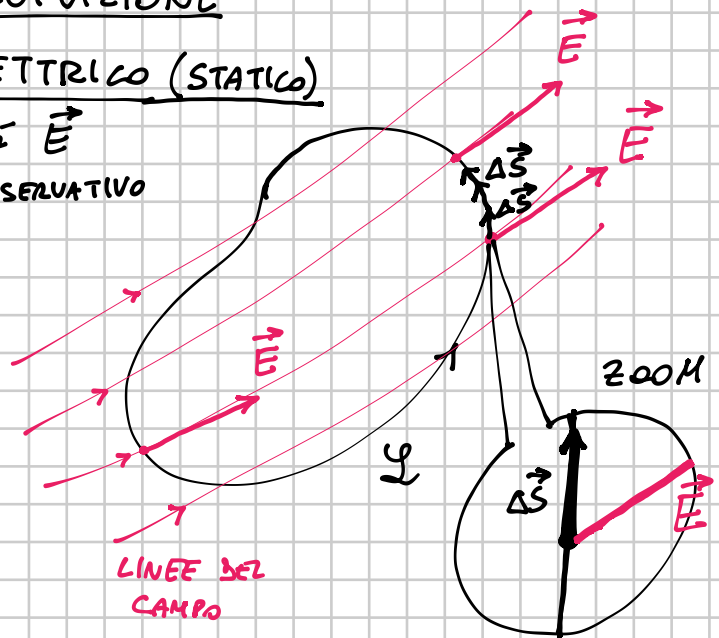 ETTRICO (STATICO)
E⃗
SERVATIVO
E⃗
E⃗
ΔS⃗
ΔS⃗
E⃗
ZOOM
ℒ
ΔS⃗
E⃗
LINEE DEL
CAMPO